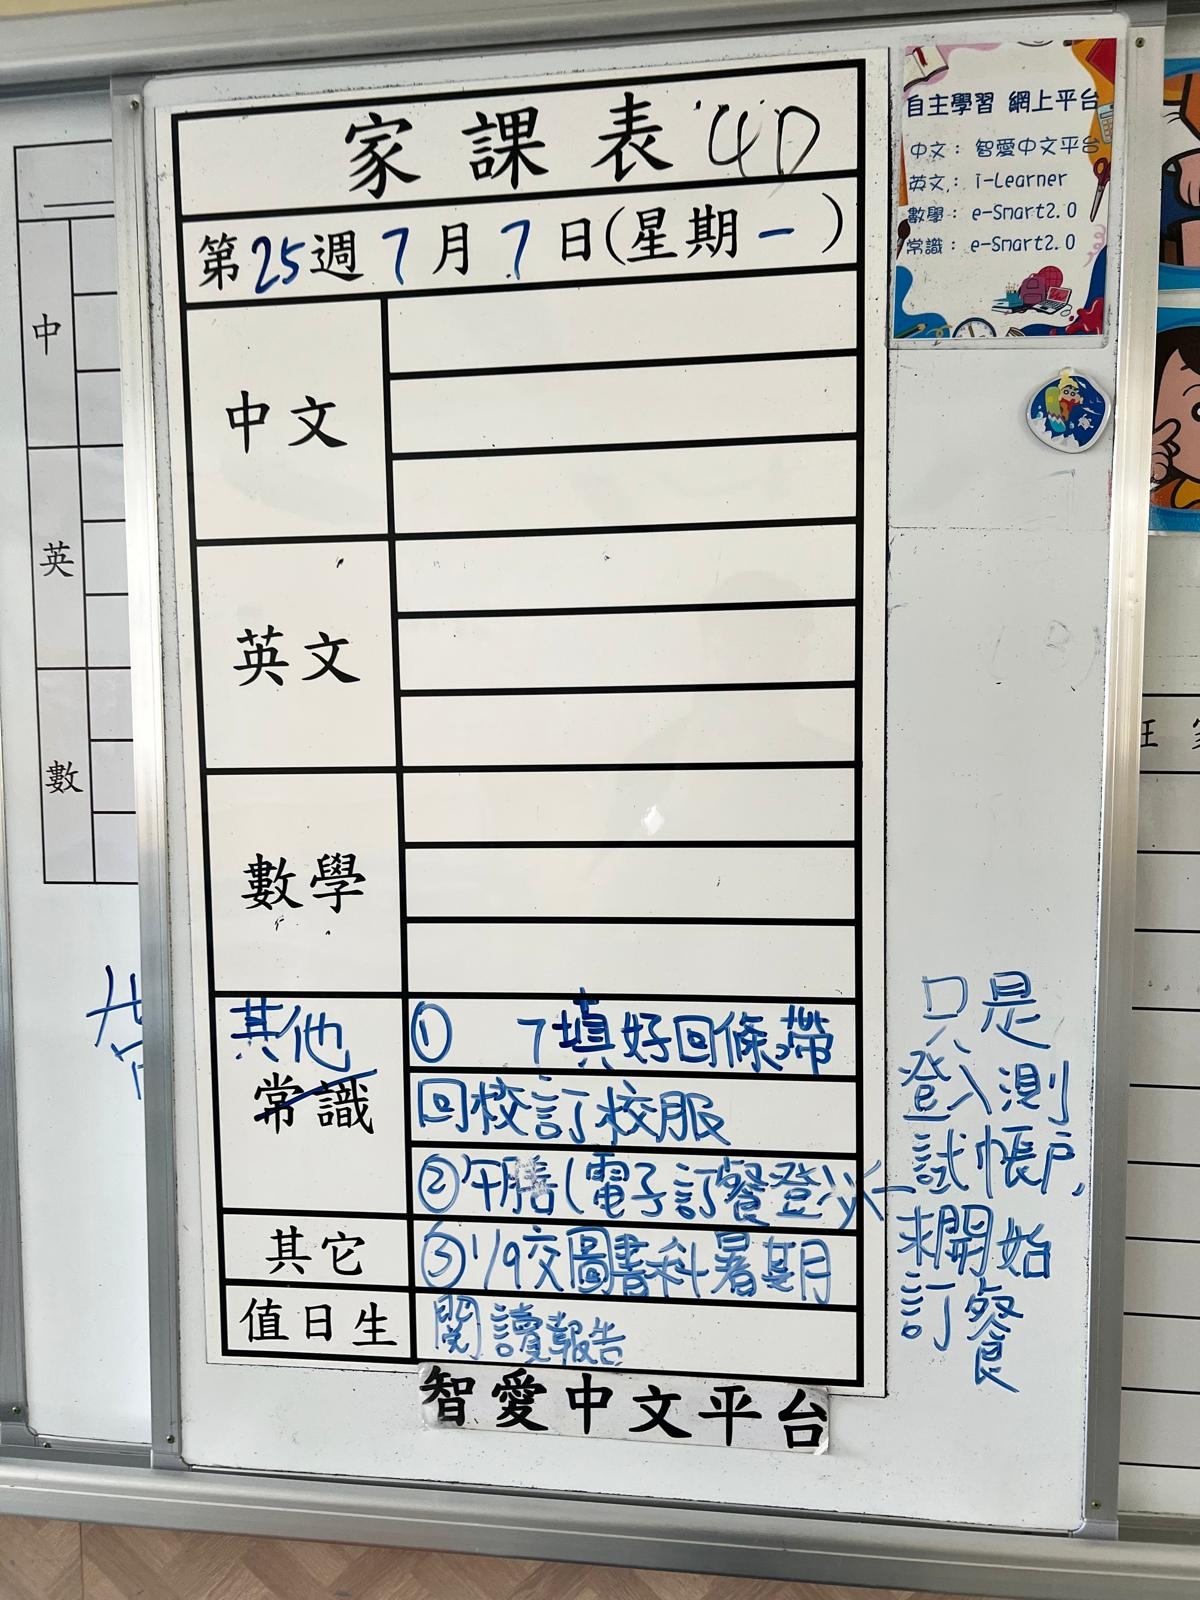 家課表 4D
第25週7月7日(星期一)
中文
英文
數學
其他
常識
① 7填好回條帶
回校訂校服
②午膳(電子訂餐登入
其它
③1/9交圖書科暑期
值日生
閱讀報告
智愛中文平台
自主學習 網上平台
中文：智愛中文平台
英文：i-Learner
數學：e-Smart2.0
常識：e-Smart2.0
只是
登入測
試帳戶,
未開始
訂餐
中
英
數